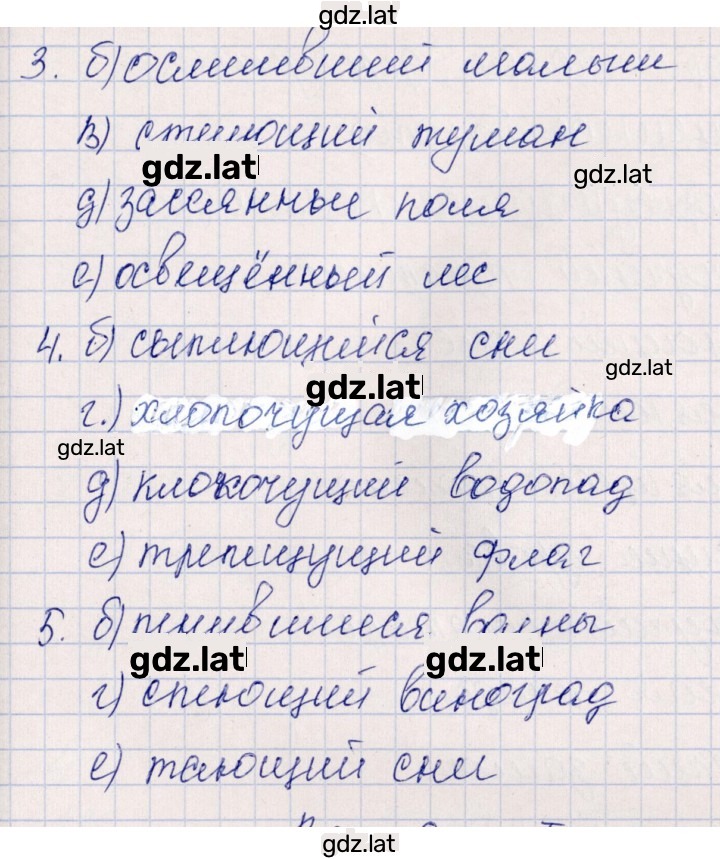 gdz.lat
3. б) осмелевший малыш
в) стелющий туман
gdz.lat
gdz.lat
д) засеянные поля
е) освещённый лес
4. б) сыплющийся снег
gdz.lat
gdz.lat
г.) хлопочущая хозяйка
gdz.lat
д) клокочущий водопад
е) трепещущий флаг
5. б) пенившиеся волны
gdz.lat gdz.lat
г) спеющий виноград
е) тающий снег
gdz.lat